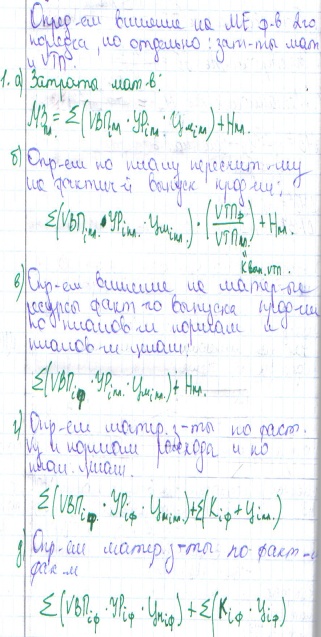 Опред-ем влияние на МЕ ф-в 2го
порядка, но отдельно: зат-ты мат
и VТП.
1. а) Затраты мат-в:
МЗпл = Σ(VВПiпл · УРiпл · Цмiпл) + Нпл.
б) Опр-ем по плану пересчит-му
на фактич-й выпуск прод-ии;
Σ(VВПiпл. · УРiпл. · Цмiпл.) · (VТПф / VТПпл.) + Нпл.
Квып. VТП.
в) Опр-ем влияние на матер-ые
ресурсы факт-го выпуска прод-ии
по плановы-м нормам и
планов-м ценам;
Σ(VВПiф · УРiпл. · Цмiпл.) + Нпл.
г) Опр-ем матер. з-ты по факт.
VВП и нормам расхода и по
план. ценам.
Σ(VВПiф · УРiф · Цмiпл.) + Σ(Кiф + Цiпл.)
д) Опр-ем матер. з-ты по факт-м
Σ(VВПiф · УРiф · Цмiф) + Σ(Кiф · Цiф)